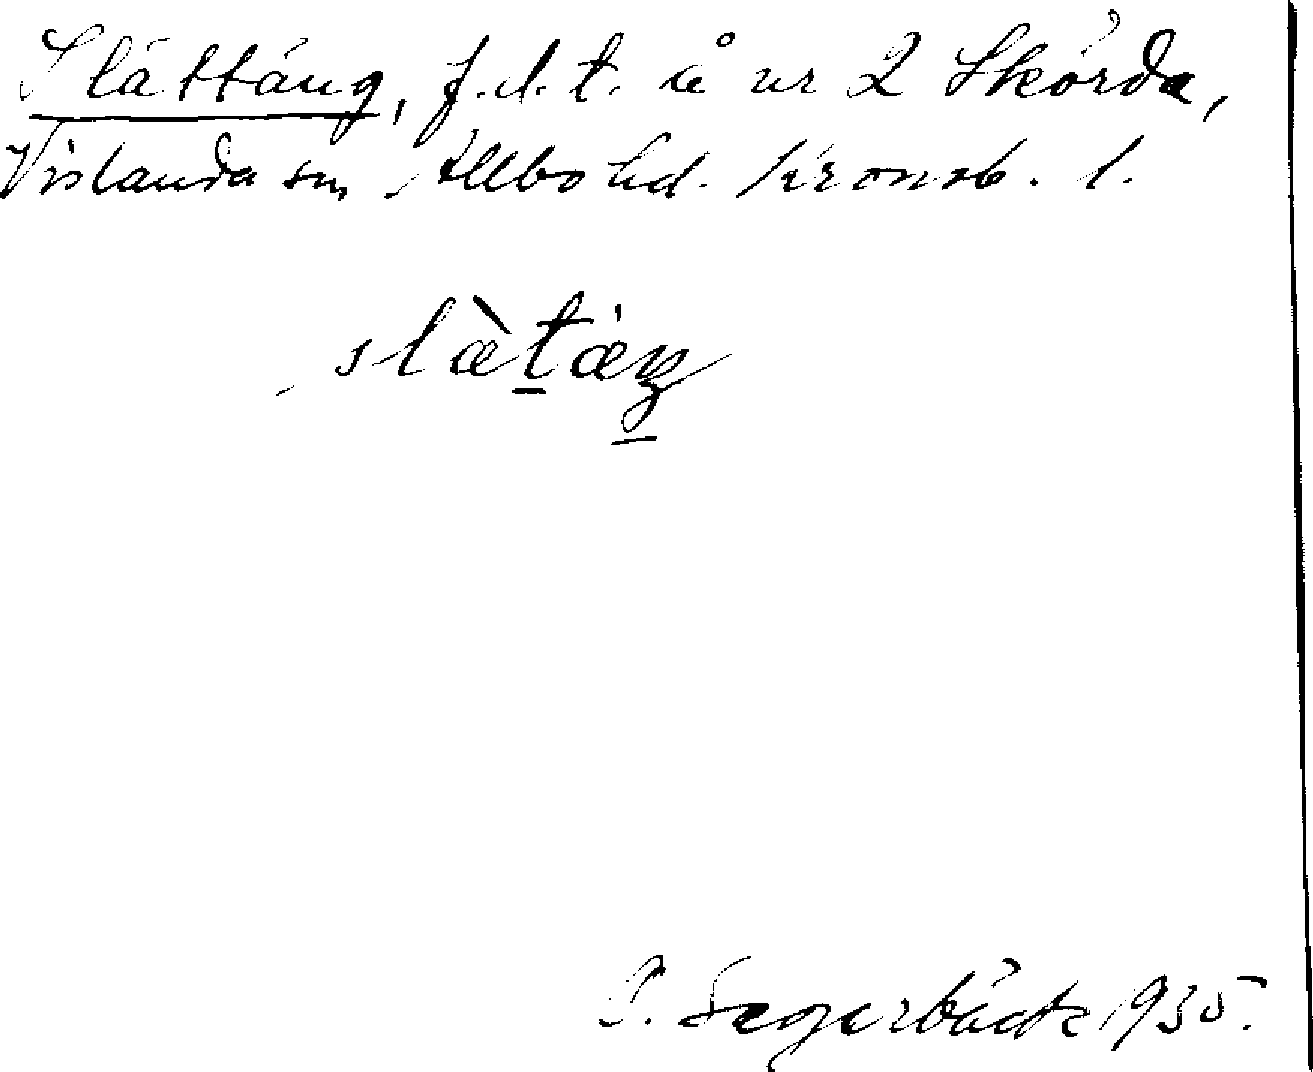 Slättäng, f.d.t. å nr 2 Skörda,
Vislanda sn, Allbo hd. Kronob. l.
slæ̀tæŋ
P. Segerbäck 1935.